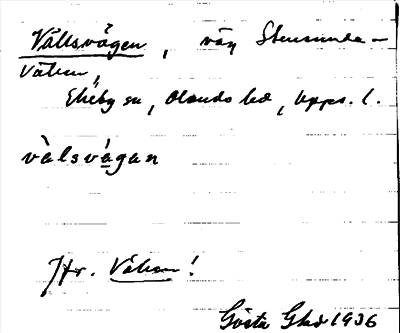 Vållsvägen, väg Stensunda –
Vålsen,
Ekeby sn, Olands hd, Upps. l.
vàlsvágan
Jfr. Vålsen!
Gösta Ghd 1936